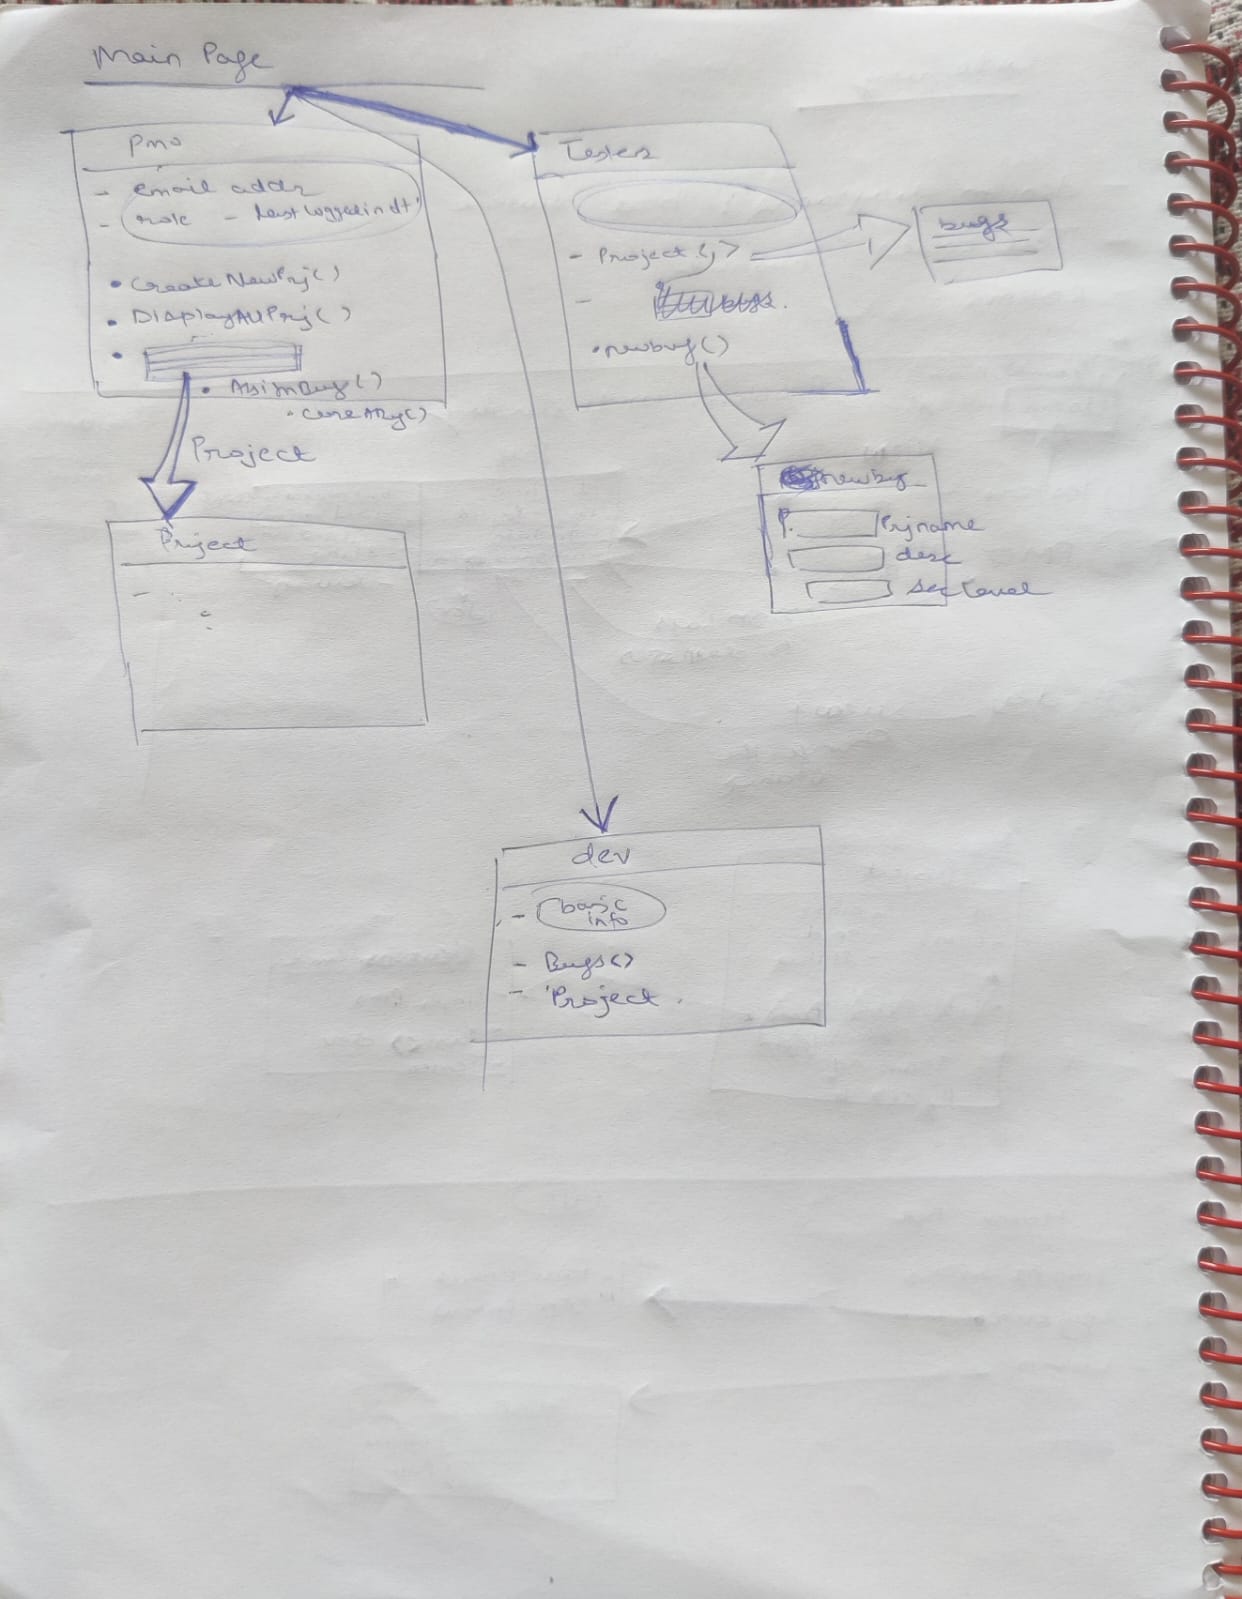 Main Page
Pmo
- email addr
- role - Last loggedin dt
• CreateNewPrj()
• DisplayAllPrj()
•
• AssignBugs()
Project
Project
-
Tester
- Project <,>
-
• newbug()
bugs
newbug
P. Prjname
desc
sec level
dev
- basic
info
- Bugs()
- Project.